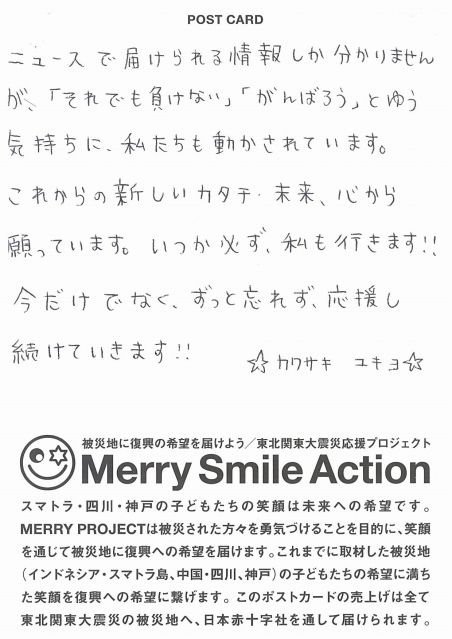 POST CARD
ニュースで届けられる情報しか分かりません
が、「それでも負けない」「がんばろう」とゆう
気持ちに、私たちも動かされています。
これからの新しいカタチ・未来、心から
願っています。いつか必ず、私も行きます!!
今だけでなく、ずっと忘れず、応援し
続けていきます!!
☆カワサキ ユキヨ☆
被災地に復興の希望を届けよう／東北関東大震災応援プロジェクト
Merry Smile Action
スマトラ・四川・神戸の子どもたちの笑顔は未来への希望です。
MERRY PROJECTは被災された方々を勇気づけることを目的に、笑顔
を通じて被災地に復興への希望を届けます。これまでに取材した被災地
（インドネシア・スマトラ島、中国・四川、神戸）の子どもたちの希望に満ち
た笑顔を復興への希望に繋げます。このポストカードの売上げは全て
東北関東大震災の被災地へ、日本赤十字社を通して届けられます。